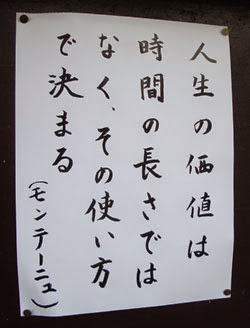 人生の価値は
時間の長さでは
なく、その使い方
で決まる
（モンテーニュ）